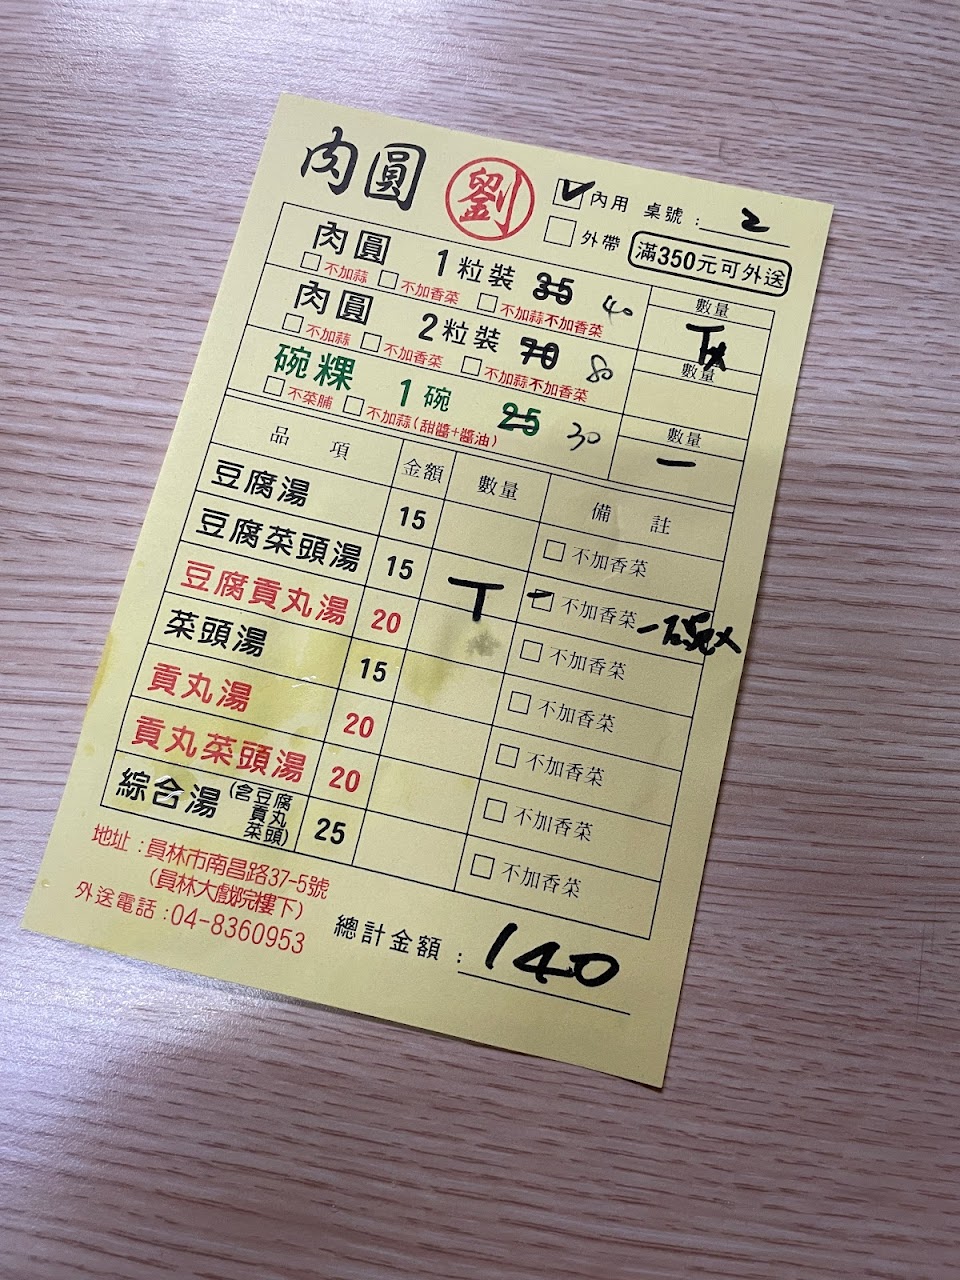 肉圓 劉 內用 桌號: 2
外帶 滿350元可外送
肉圓 1粒裝 35 40 數量
不加蒜 不加香菜 不加蒜不加香菜 T
肉圓 2粒裝 70 80 數量
不加蒜 不加香菜 不加蒜不加香菜
碗粿 1碗 25 30 數量
不菜脯 不加蒜(甜醬+醬油) 一
品項 金額 數量 備註
豆腐湯 15 不加香菜
豆腐菜頭湯 15 T 不加香菜 一
豆腐貢丸湯 20 不加香菜
菜頭湯 15 不加香菜
貢丸湯 20 不加香菜
貢丸菜頭湯 20 不加香菜
綜合湯(含豆腐貢丸菜頭) 25 不加香菜
地址:員林市南昌路37-5號
(員林大戲院樓下)
外送電話:04-8360953
總計金額: 140